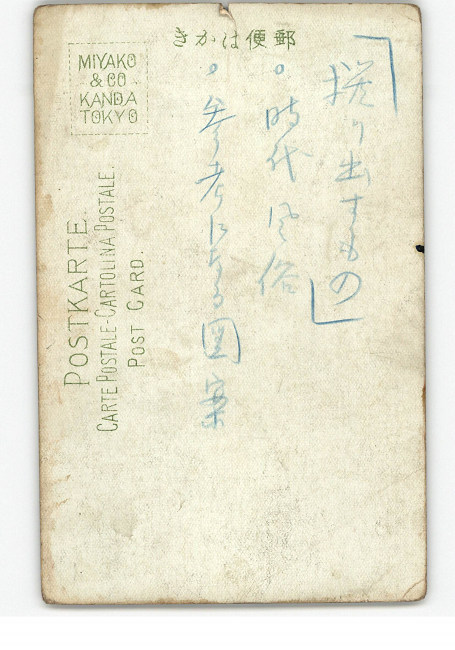 きかは便郵
MIYAKO
& CO
KANDA
TOKYO
POSTKARTE.
CARTE POSTALE-CARTOLINA POSTALE.
POST CARD.
「撰り出すもの」
○時代風俗
○参考になる図案